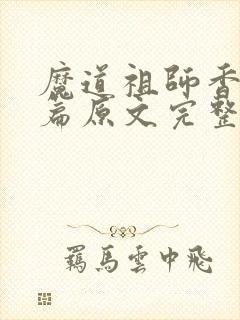 魔道祖師香
篇原文完整
羁馬雲中飛